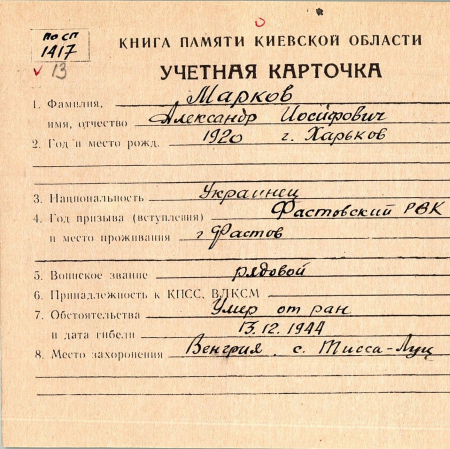 по сп
1417
v 13
КНИГА ПАМЯТИ КИЕВСКОЙ ОБЛАСТИ
УЧЕТНАЯ КАРТОЧКА
1. Фамилия, Марков
имя, отчество Александр Иосифович
2. Год и место рожд. 1920 г. Харьков
3. Национальность Украинец
4. Год призыва (вступления) Фастовский РВК
и место проживания г Фастов
5. Воинское звание рядовой
6. Принадлежность к КПСС, ВЛКСМ
7. Обстоятельства Умер от ран
и дата гибели 13.12.1944
8. Место захоронения Венгрия, с. Тисса-Луц